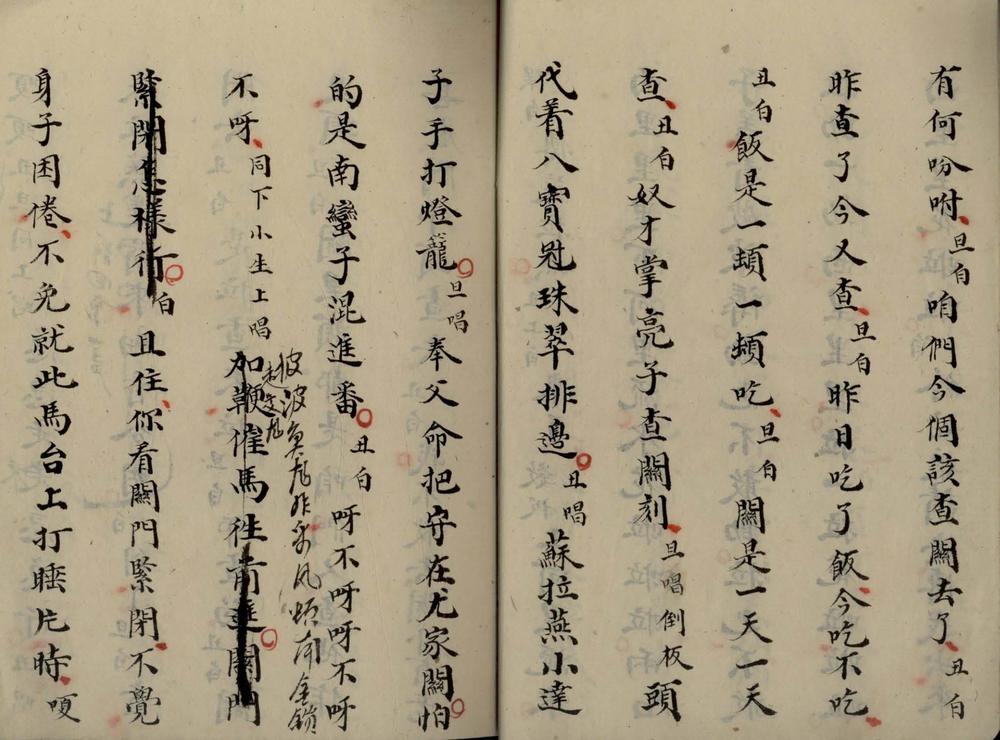 有何吩咐旦白咱們今個該查關去了丑白
昨查了今又查旦白昨日吃了飯今吃不吃
丑白飯是一頓一頓吃旦白關是一天一天
查丑白奴才掌亮子查關刻旦唱倒板頭
代着八寶冠珠翠排邊丑唱蘇拉燕小達
子手打燈籠旦唱奉父命把守在尤家關怕
的是南蠻子混進番丑白呀不呀呀不呀
不呀同下小生上唱加鞭催馬往前進關門
緊閉怎樣行白且住你看關門緊閉不覺
身子困倦不免就此馬台上打睡片時哽